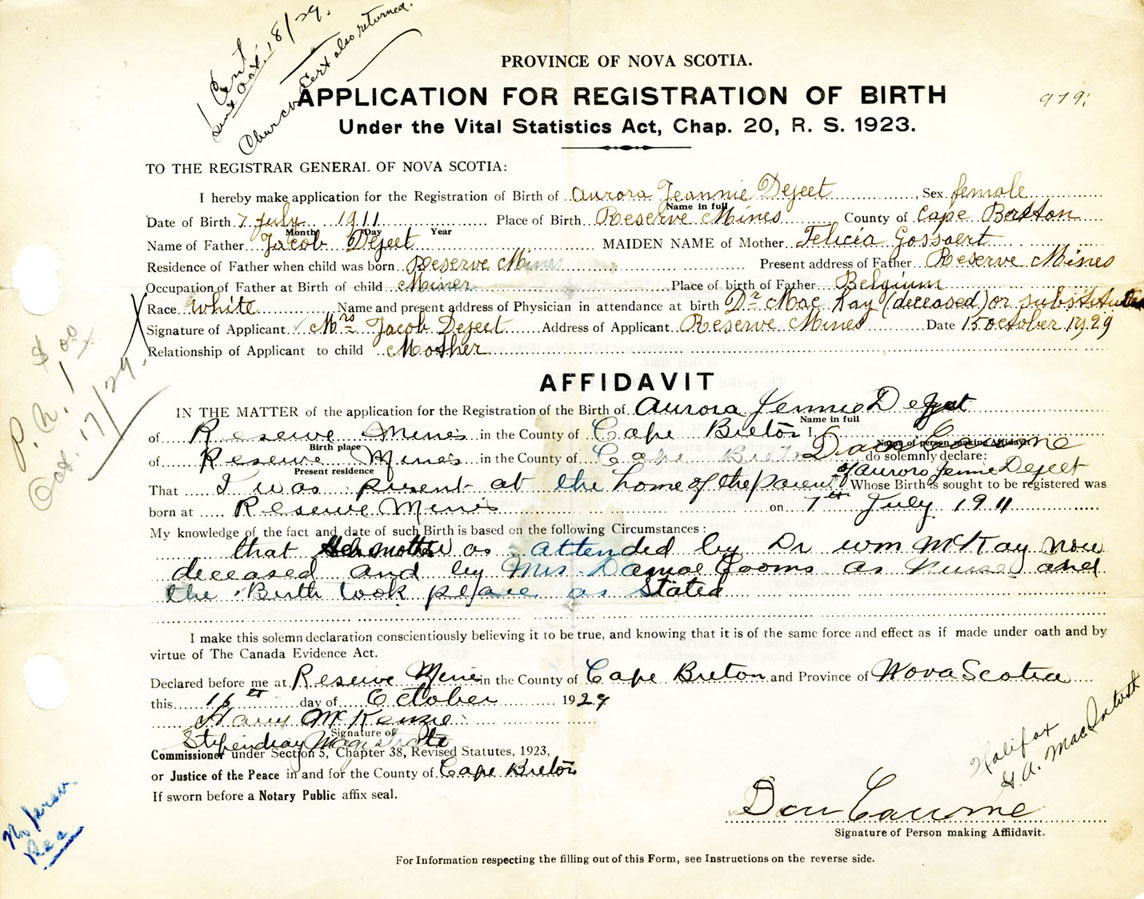 Cert
sent Oct. 18/29.
Church Cert also returned.
PROVINCE OF NOVA SCOTIA.
APPLICATION FOR REGISTRATION OF BIRTH
Under the Vital Statistics Act, Chap. 20, R. S. 1923.
TO THE REGISTRAR GENERAL OF NOVA SCOTIA:
I hereby make application for the Registration of Birth of Aurora Jeannie Dejeet Sex female
Name in full
Date of Birth 7 July 1911 Place of Birth Reserve Mines County of Cape Breton
Month Day Year
Name of Father Jacob Dejeet MAIDEN NAME of Mother Felicia Gossaert
Residence of Father when child was born Reserve Mines Present address of Father Reserve Mines
Occupation of Father at Birth of child Miner Place of birth of Father Belgium
Race white Name and present address of Physician in attendance at birth Dr Mac Kay (deceased) or substitute
Signature of Applicant Mrs Jacob Dejeet Address of Applicant Reserve Mines Date 15 october 1929
Relationship of Applicant to child Mother
X
P. N. $1.00
Oct. 17/29.
AFFIDAVIT
IN THE MATTER of the application for the Registration of the Birth of Aurora Jennie Dejeet
Name in full
of Reserve Mines in the County of Cape Breton I Dan
Birth place Name of person making Affidavit
of Reserve Mines in the County of Cape Breton do solemnly declare:
Present residence
That I was present at the home of the parent of Aurora Jennie Dejeet Whose Birth is sought to be registered was
born at Reserve Mines on 7th July 1911
My knowledge of the fact and date of such Birth is based on the following Circumstances:
that mother was attended by Dr Wm McKay now
deceased and by Mrs. as Nurse and
the Birth took place as Stated
I make this solemn declaration conscientiously believing it to be true, and knowing that it is of the same force and effect as if made under oath and by
virtue of The Canada Evidence Act.
Declared before me at Reserve Mines in the County of Cape Breton and Province of Nova Scotia
this 16th day of October 1929
Harry McKenzie
Signature of
Stipendiary Magistrate
Commissioner under Section 5, Chapter 38, Revised Statutes, 1923,
or Justice of the Peace in and for the County of Cape Breton
If sworn before a Notary Public affix seal.
Halifax
MacIntosh
Dan
Signature of Person making Affidavit.
For Information respecting the filling out of this Form, see Instructions on the reverse side.